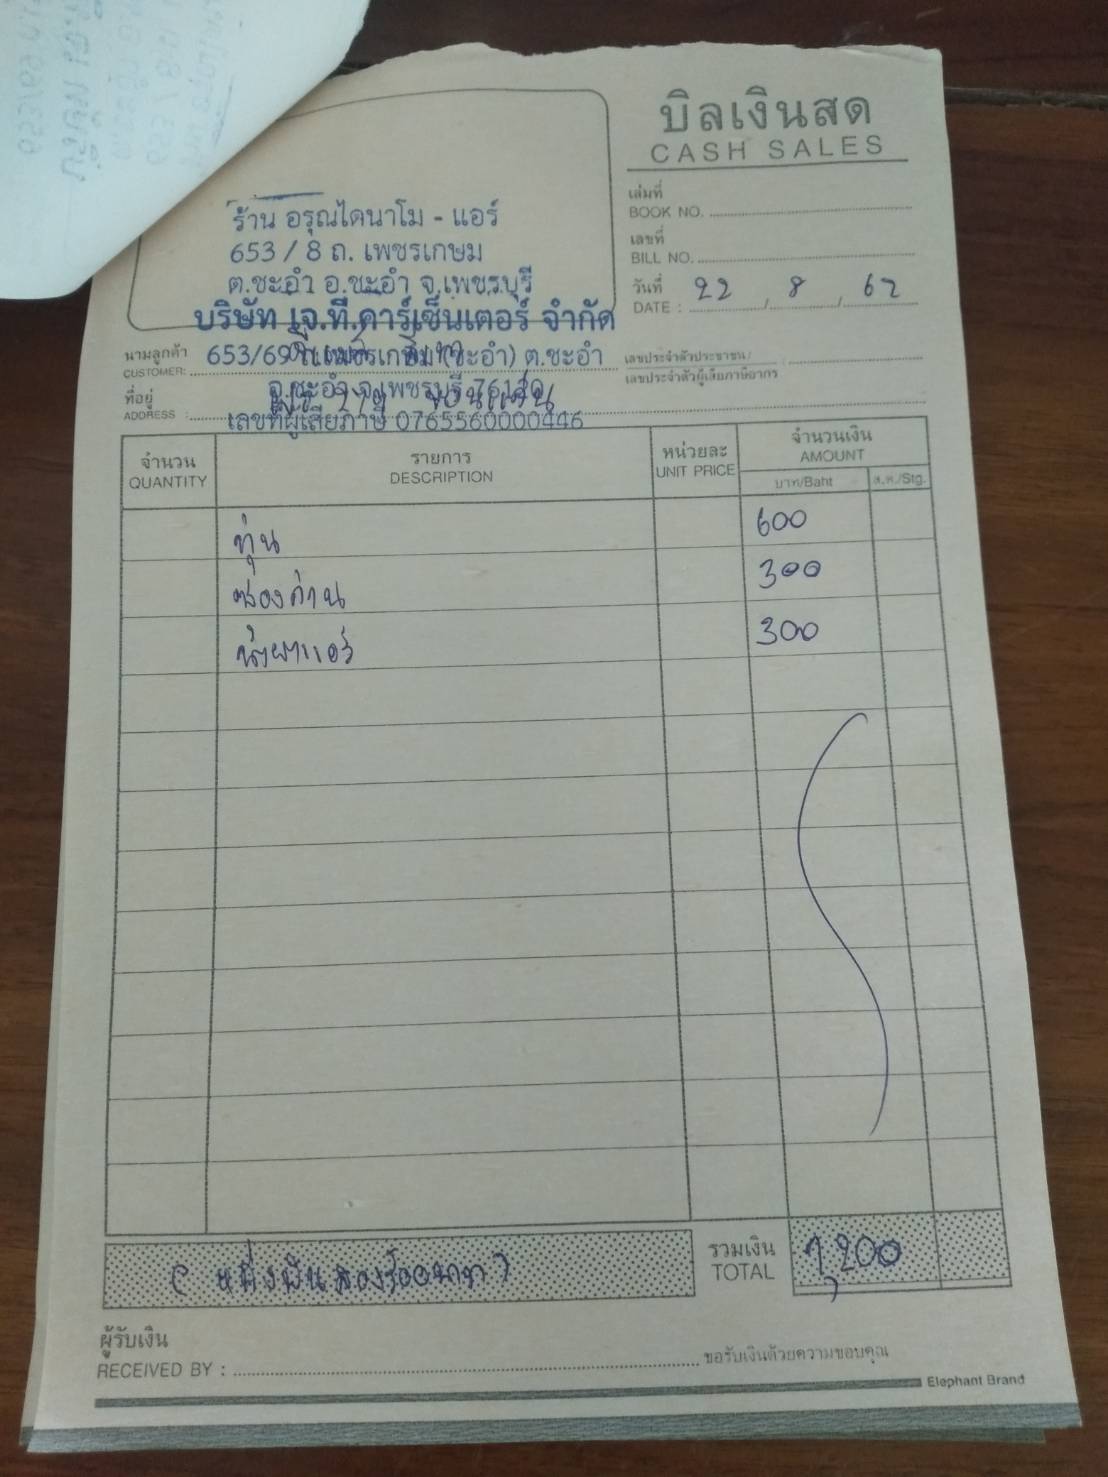 บิลเงินสด
CASH SALES
เล่มที่
BOOK NO.
เลขที่
BILL NO.
วันที่
DATE : 22 / 8 / 62
ร้าน อรุณไดนาโม - แอร์
653 / 8 ถ. เพชรเกษม
ต.ชะอำ อ.ชะอำ จ.เพชรบุรี
บริษัท เจ.ที.คาร์เซ็นเตอร์ จำกัด
นามลูกค้า
CUSTOMER:
653/69 ถ.เพชรเกษม (ชะอำ) ต.ชะอำ
เลขประจำตัวประชาชน/
เลขประจำตัวผู้เสียภาษีอากร
ที่อยู่
ADDRESS :
อ.ชะอำ จ.เพชรบุรี 76120
ขอนแก่น
เลขที่ผู้เสียภาษี 0765560000446
จำนวน
QUANTITY
รายการ
DESCRIPTION
หน่วยละ
UNIT PRICE
จำนวนเงิน
AMOUNT
บาท/Baht
ส.ต./Stg.
ทุ่น 600
ซองถ่าน 300
น้ำยาแอร์ 300
(หนึ่งพันสองร้อยบาท)
รวมเงิน
TOTAL
1,200
ผู้รับเงิน
RECEIVED BY :
ขอรับเงินด้วยความขอบคุณ
Elephant Brand